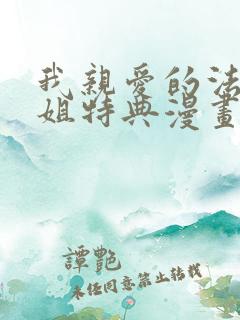 我親愛的法
姐特典漫畫
譚艷
未任同意禁止轉載